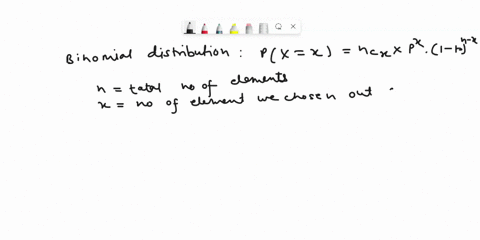 Binomial distribution : P(X = x) = ncx × p^x . (1-p)^n-x
n = total no of elements
x = no of element we chosen out